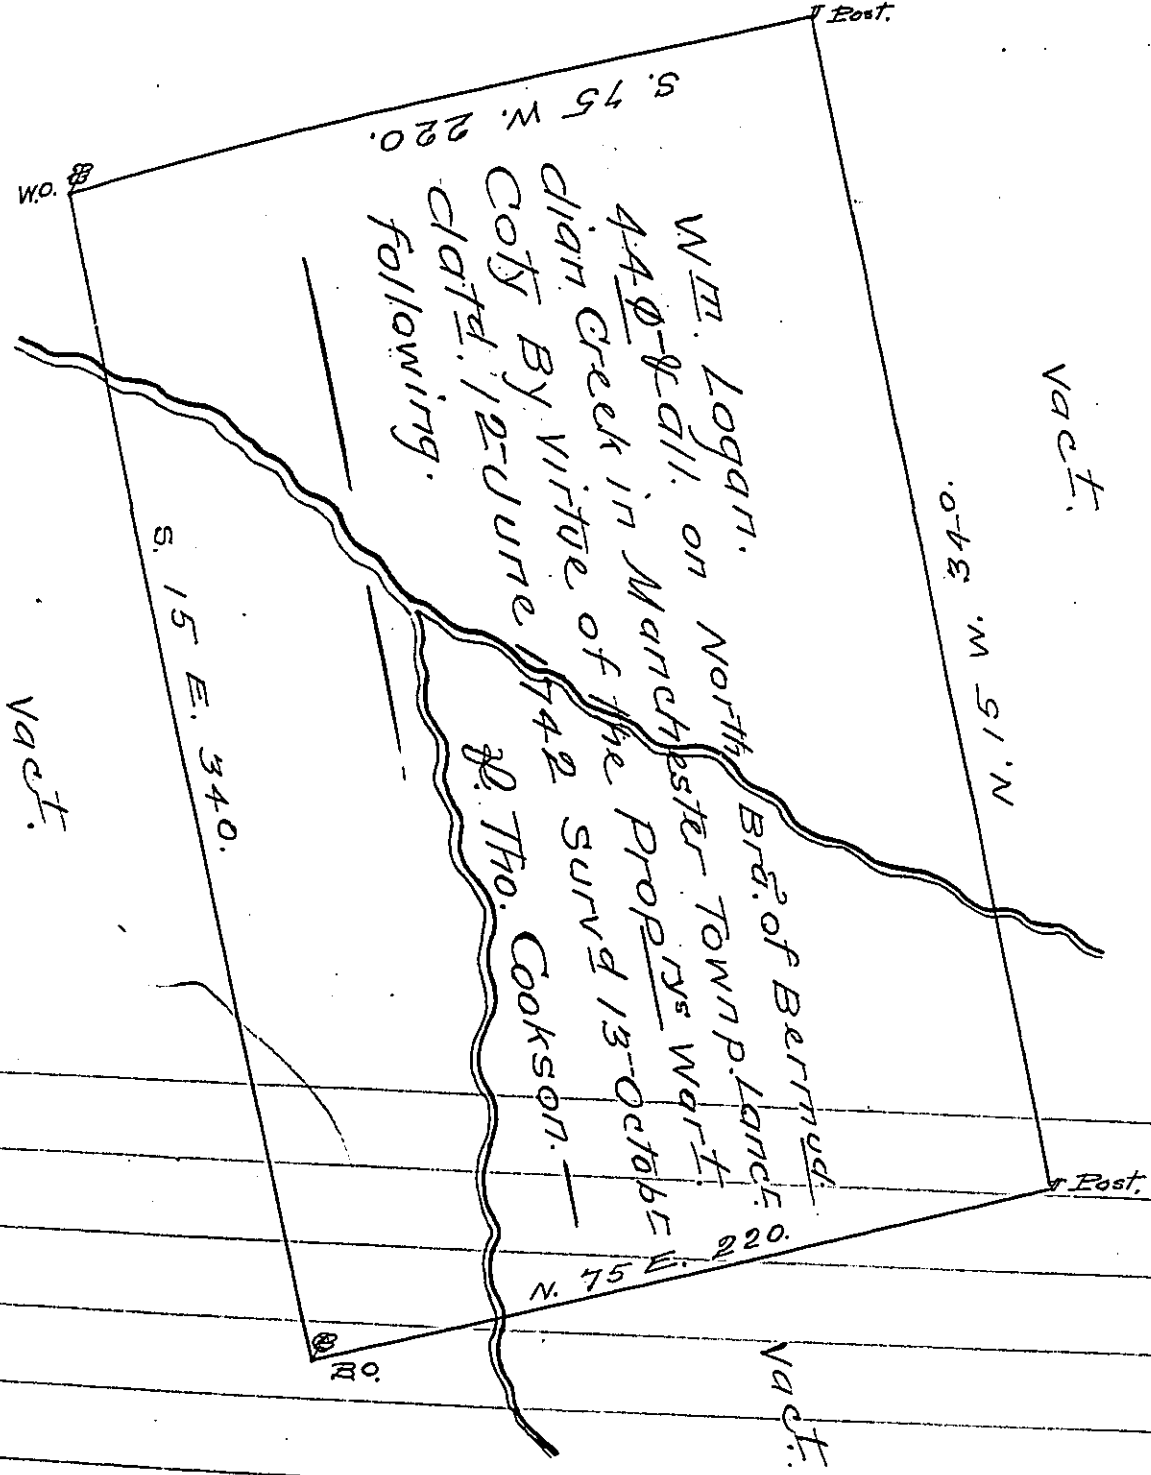 Post.
S. 75 W. 220.
W.O.
Vact.
N. 15 W. 340.
Wm. Logan.
440 & all. on North Bra. of Bermud.
dian Creek in Manchester Townp. Lancr.
Coty By Virtue of the Proprys Warrt.
datd. 12 June 1742 Survd 13 Octobr
following.
P. Tho. Cookson.
S. 15 E. 340.
Vact.
Post.
N. 75 E. 220.
BO.
Vact.